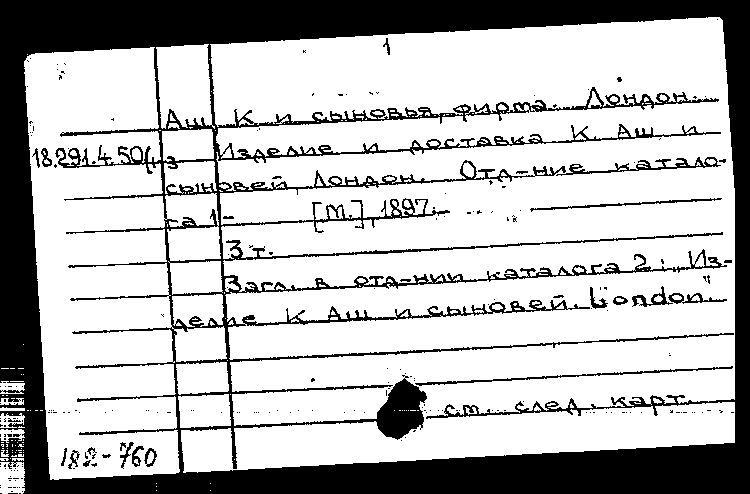 1
Аш К и сыновья, фирма. Лондон.
18.291.4.504 Изделие и доставка К. Аш и
сыновей, Лондон. Отд-ние катало-
га 1- [М.], 1897.-
3 т.
Загл. в отд-нии каталога 2: „Из-
делие К Аш и сыновей. London".
см. след. карт.
182-760